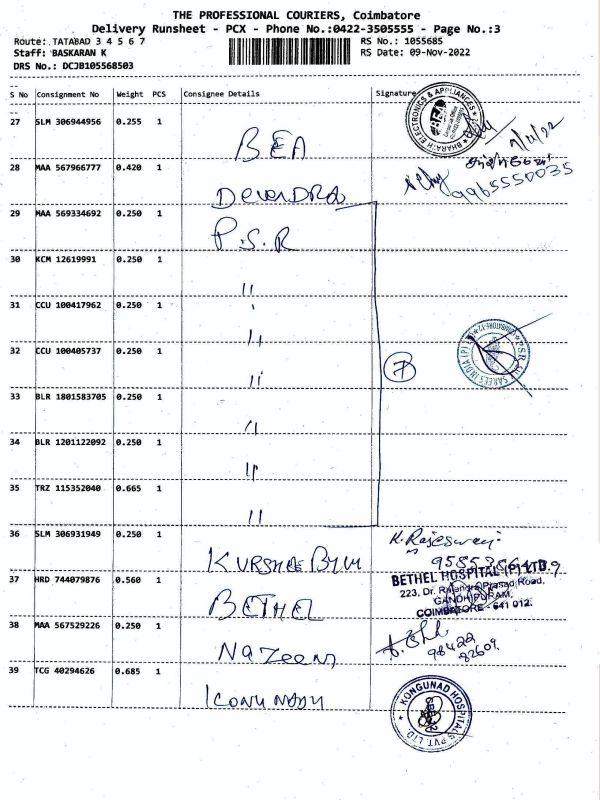 THE PROFESSIONAL COURIERS, Coimbatore
Delivery Runsheet - PCX - Phone No.:0422-3505555 - Page No.:3
Route: TATABAD 3 4 5 6 7
RS No.: 1055685
Staff: BASKARAN K
RS Date: 09-Nov-2022
DRS No.: DCJB105568503
S No Consignment No Weight PCS Consignee Details Signature
27 SLM 306944956 0.255 1 BEA
BHARATH ELECTRONICS & APPLIANCES
28 MAA 567966777 0.420 1 DevenDRA
9965550035
29 MAA 569334692 0.250 1 P.S.R
30 KCM 12619991 0.250 1 "
31 CCU 100417962 0.250 1 "
32 CCU 100405737 0.250 1 "
7
P.S.R SILK SAREES INDIA (P) LTD
33 BLR 1801583705 0.250 1 "
34 BLR 1201122092 0.250 1 "
35 TRZ 115352040 0.665 1 "
36 SLM 306931949 0.250 1
K. Rajeswari
37 HRD 744079876 0.560 1 BETHEL
BETHEL HOSPITAL (P) LTD.
223, Dr. Rajendra Prasad Road,
GANDHIPURAM,
COIMBATORE - 641 012.
38 MAA 567529226 0.250 1 Nazeema
98422
82609
39 TCG 40294626 0.685 1
KONGUNAD HOSPITALS PVT. LTD.